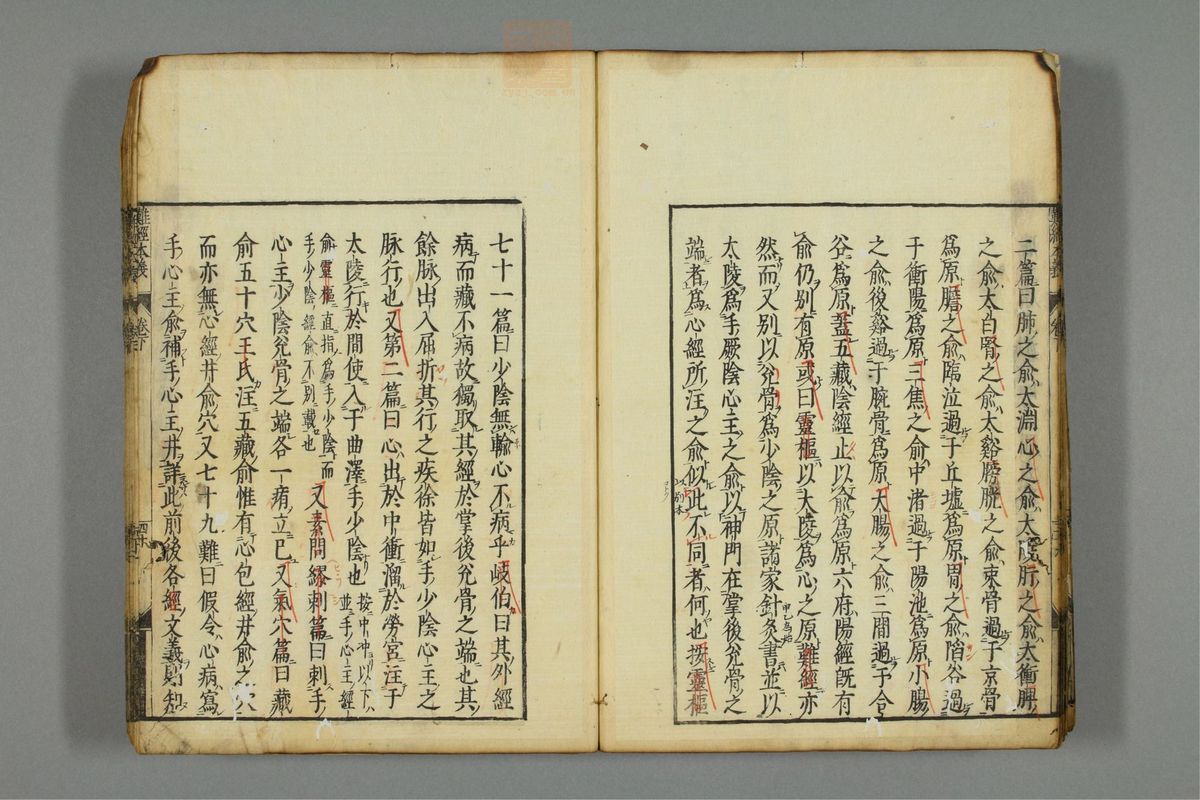 二篇曰肺之兪太淵心之兪大陵肝之兪太衝脾
之兪太白腎之兪太谿膀胱之兪束骨過于京骨
為原膽之兪臨泣過于丘墟為原胃之兪陷谷過
于衝陽為原三焦之兪中渚過于陽池為原小腸
之兪後谿過于腕骨為原大腸之兪三間過于合
谷為原蓋五藏陰經止以兪為原六府陽經既有
兪仍別有原或曰靈樞以大陵為心之原難經亦
然而又別以兊骨為少陰之原諸家針灸書並以
太陵為手厥陰心主之兪以神門在掌後兊骨之
端者為心經所注之兪似此不同者何也按靈樞
七十一篇曰少陰無輸心不病乎岐伯曰其外經
病而藏不病故獨取其經於掌後兊骨之端也其
餘脉出入屈折其行之疾徐皆如手少陰心主之
脉行也又第二篇曰心出於中衝溜於勞宮注于
太陵行於間使入于曲澤手少陰也按中冲以下並手心主經
兪靈樞直指為手少陰而手少陰經兪不別載也又素問繆刺篇曰刺手
心主少陰兊骨之端各一痏立已又氣穴篇曰藏
兪五十穴王氏注五藏兪惟有心包經井兪之穴
而亦無心經井兪穴又七十九難曰假令心病瀉
手心主兪補手心主井詳此前後各經文義則知
難經本義
卷下